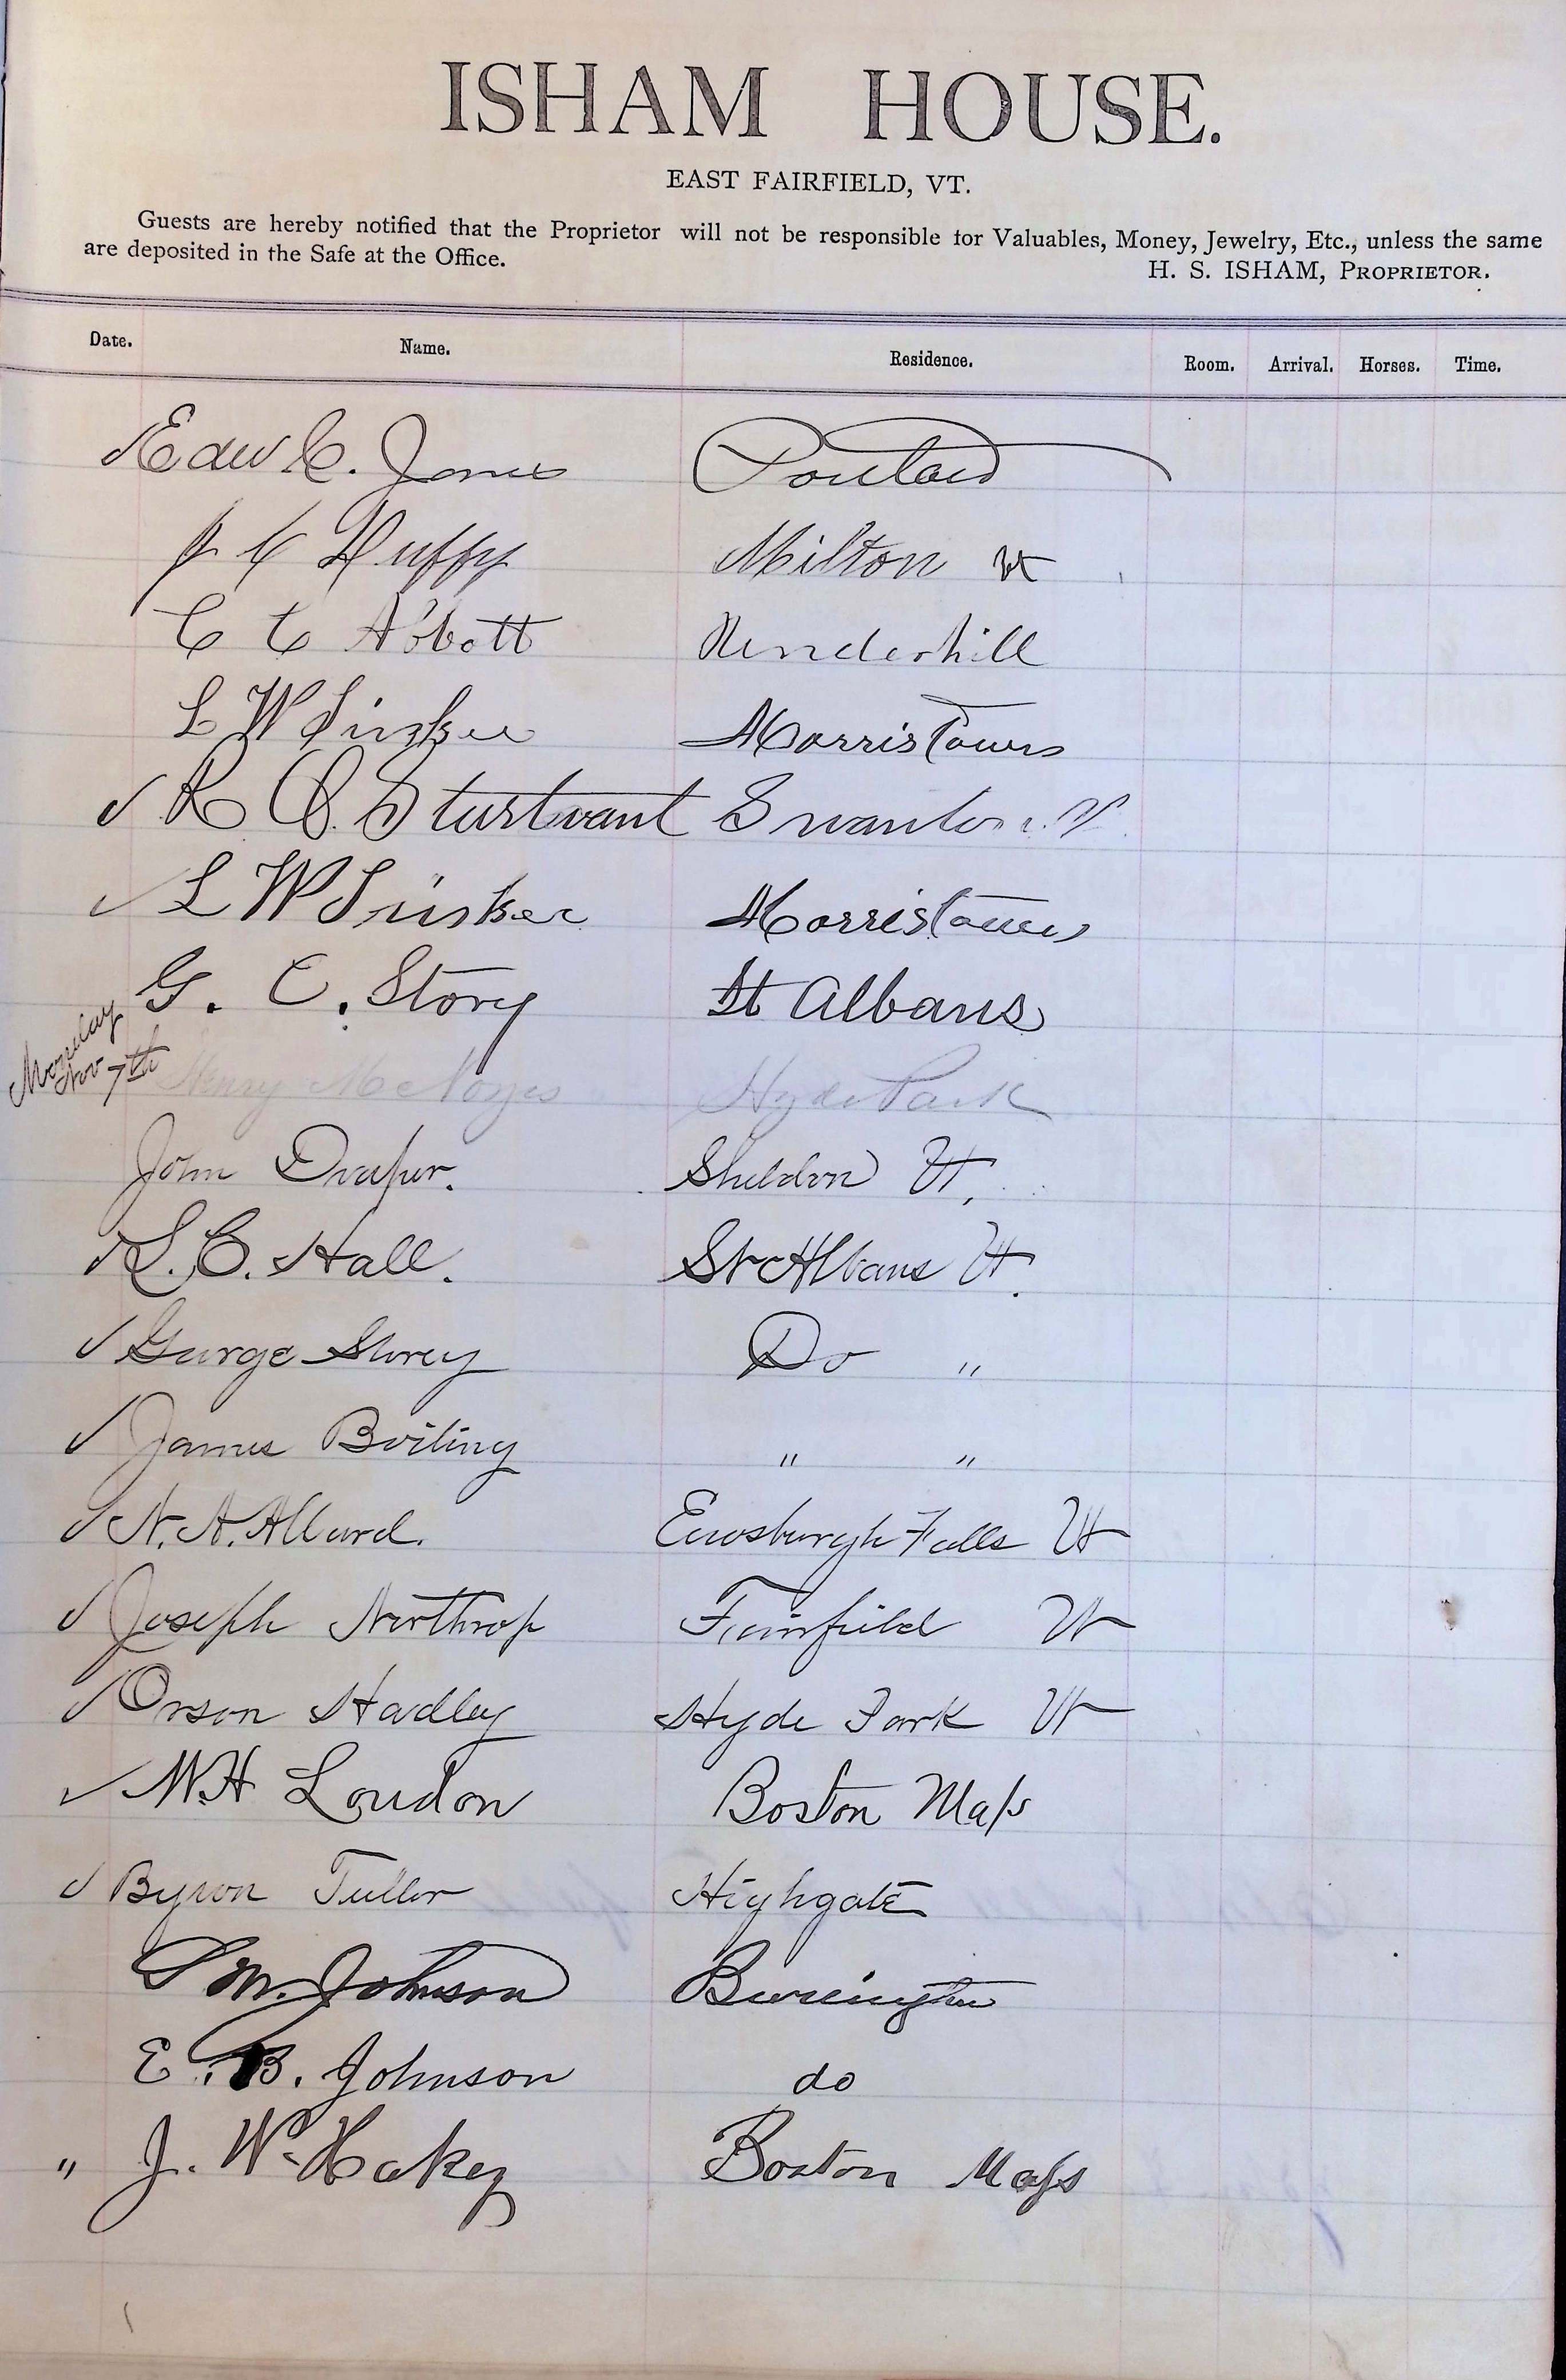 ISHAM HOUSE.
EAST FAIRFIELD, VT.
Guests are hereby notified that the Proprietor will not be responsible for Valuables, Money, Jewelry, Etc., unless the same
are deposited in the Safe at the Office.
H. S. ISHAM, PROPRIETOR.
Date. Name. Residence. Room. Arrival. Horses. Time.
Edw C. Jones
J C Duffy Milton Vt
C C Abbott Underhill
L W Morristown
R O Sturtevant Swanton V
L W Morristown
G. C. Story St Albans
Monday
Nov 7th Henry McNoyes Hyde Park
John Draper. Sheldon Vt.
L. C. Hall. St Albans Vt.
George Storey Do "
James Boiling " "
N. A. Allard. Enosburgh Falls Vt
Joseph Northrop Fairfield Vt
Orson Hadley Hyde Park Vt
W. H Loudon Boston Mass
Byron Tuller Highgate
S M. Johnson Burlington
E. B. Johnson do
" J. W. Hakey Boston Mass